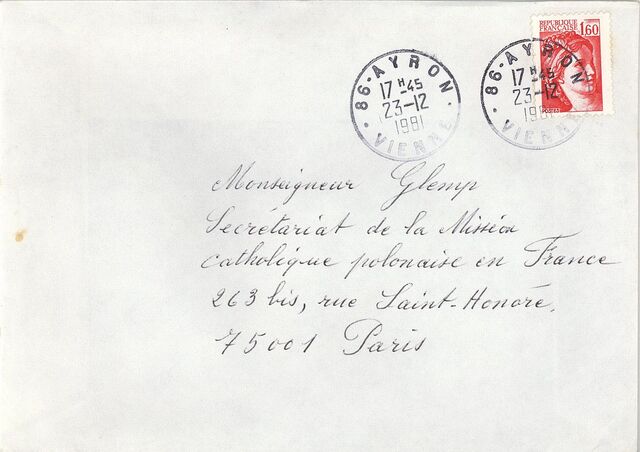 REPUBLIQUE
FRANCAISE
1,60
86-AYRON
17 H 45
23-12
1981
VIENNE
86-AYRON
17 H 45
23-12
198
VIENN
Monseigneur Glemp
Secrétariat de la Mission
catholique polonaise en France
263 bis, rue Saint-Honoré,
75001 Paris